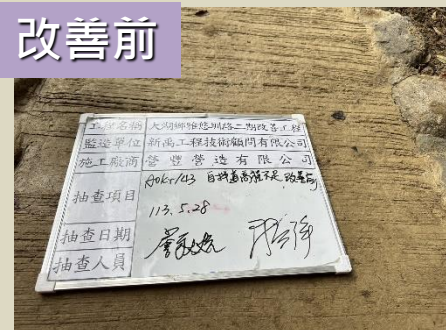 改善前
工程名稱 大湖鄉雅悠圳路二期改善工程
監造單位 新禹工程技術顧問有限公司
施工廠商 營豐營造有限公司
抽查項目 0k+143 自行車道高程不足,改善前
抽查日期 113.5.28
抽查人員